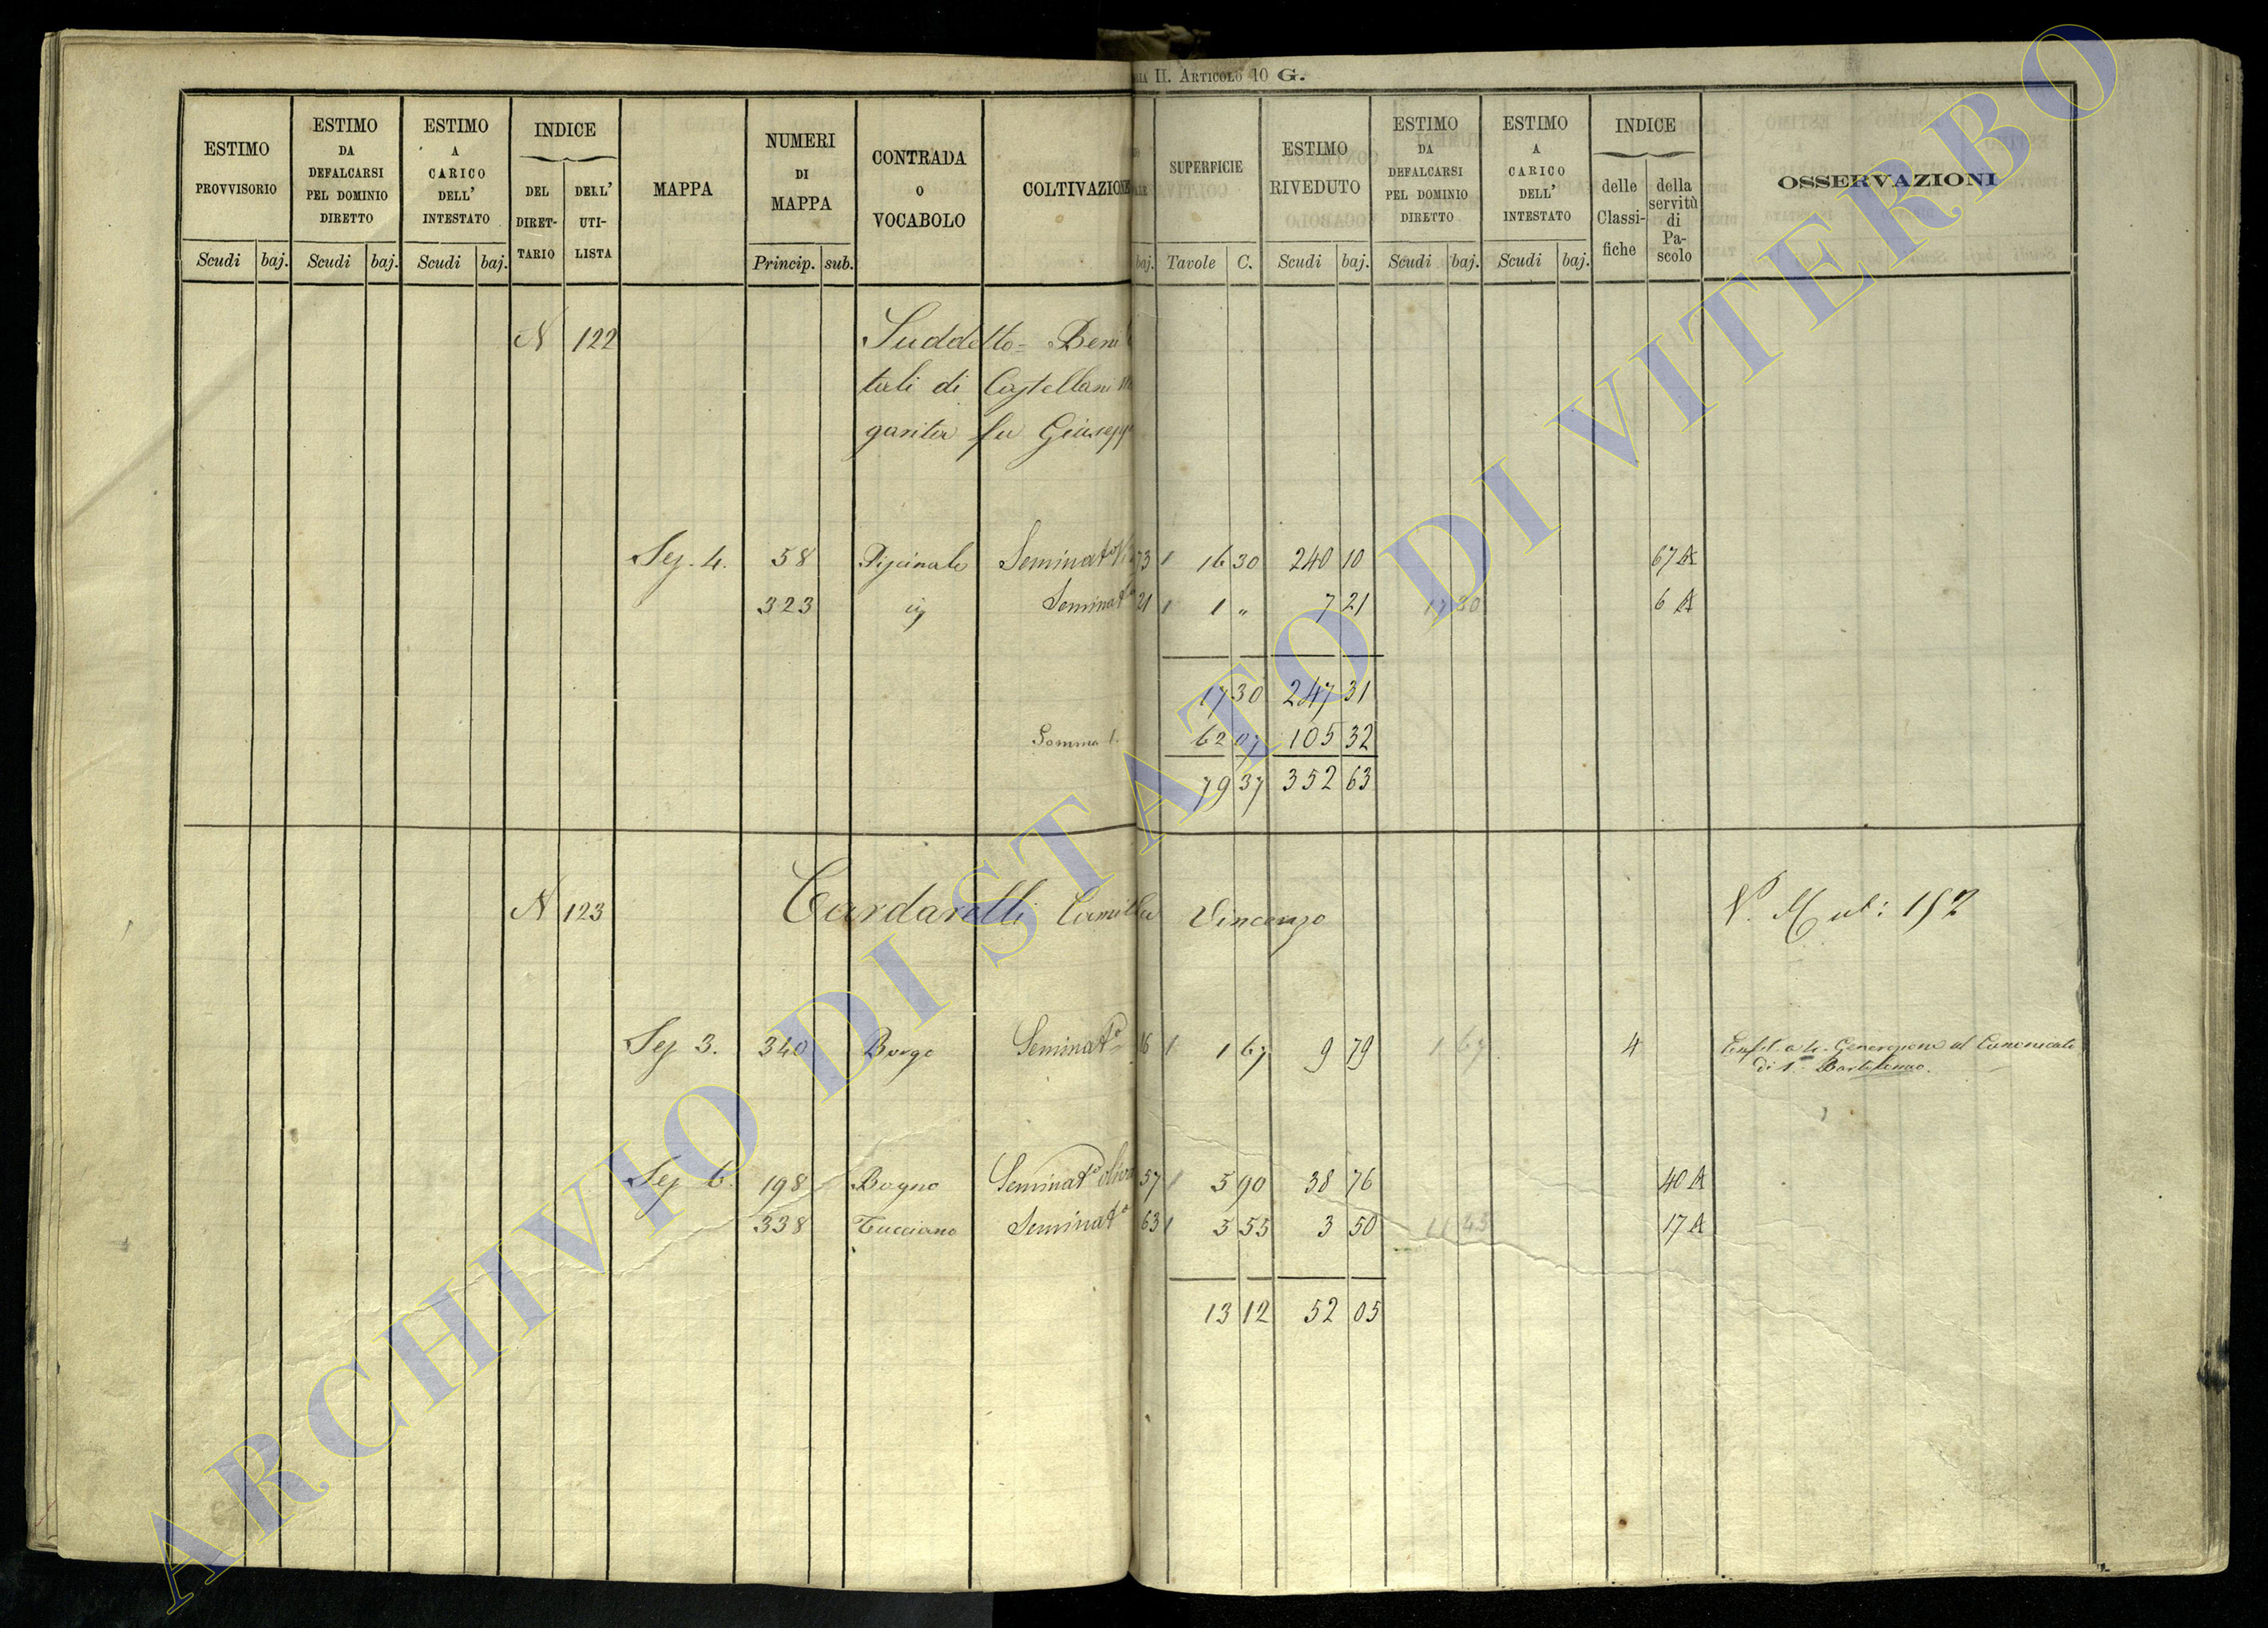 II. ARTICOLO 10 G.
ESTIMO PROVVISORIO
ESTIMO DA DEFALCARSI PEL DOMINIO DIRETTO
ESTIMO A CARICO DELL' INTESTATO
INDICE
DEL DIRET-TARIO
DELL' UTI-LISTA
MAPPA
NUMERI DI MAPPA
CONTRADA O VOCABOLO
COLTIVAZIONE
SUPERFICIE
ESTIMO RIVEDUTO
ESTIMO DA DEFALCARSI PEL DOMINIO DIRETTO
ESTIMO A CARICO DELL' INTESTATO
INDICE
delle Classi-fiche
della servitù di Pa-scolo
OSSERVAZIONI
Scudi baj. Scudi baj. Scudi baj. Princip. sub. baj. Tavole C. Scudi baj. Scudi baj. Scudi baj.
N 122 Suddetto = Beni
tali di Castellani
garita fu Giuseppe
Sez. 4. 58 Seminat° 73 1 16 30 240 10 67 A
323 Seminat° 21 1 1 " 7 21 17 30 6 A
17 30 247 31
Somma 1. 62 07 105 32
79 37 352 63
N 123 Cardarelli Camilla Vincenzo
V. Mut: 152
Sez 3. 340 Borgo Seminat° 16 1 1 67 9 79 1 67 4
di S. Bartolomeo.
Sez 6. 198 Bagno Seminat° 57 1 5 90 38 76 40 A
338 Tucciano Seminat° 63 1 5 55 3 50 11 45 17 A
13 12 52 05
ARCHIVIO DI STATO DI VITERBO